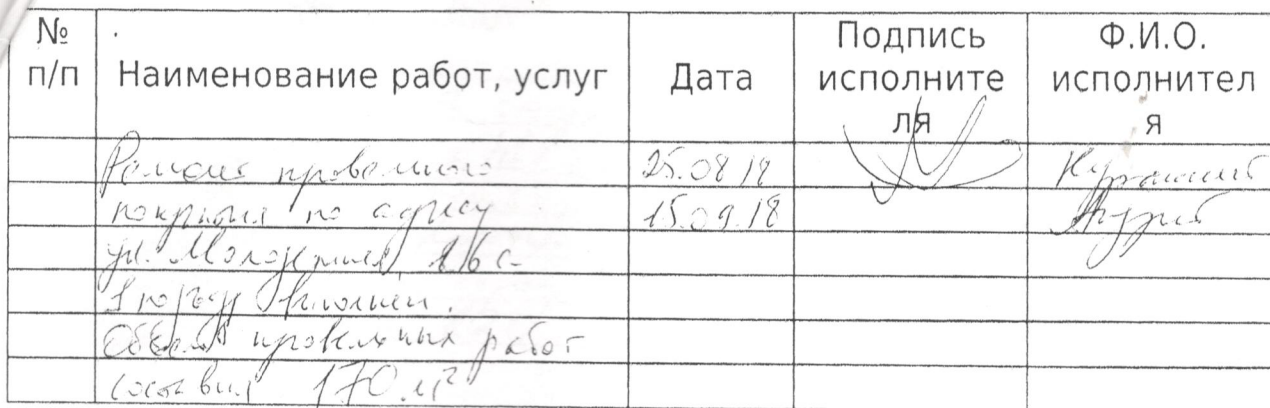 № п/п
Наименование работ, услуг
Дата
Подпись исполните ля
Ф.И.О. исполнител я
Ремонт кровельного
25.08.18
покрытия по адресу
15.09.18
ул. Молодежная, 16а
1 подъезд выполнен.
Объем кровельных работ
составил 170 м²